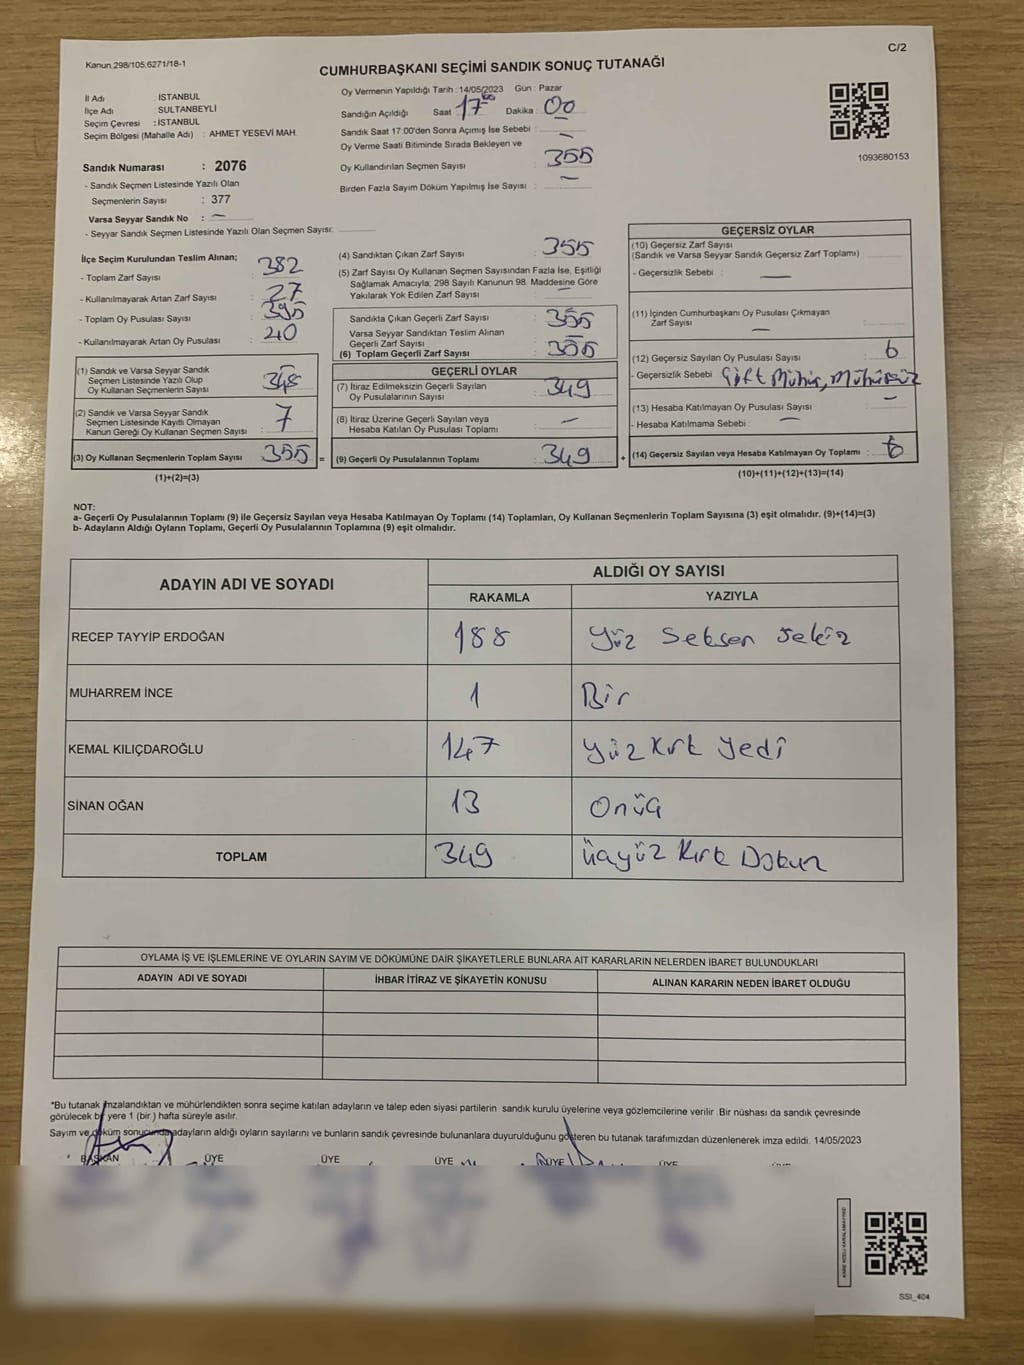 Kanun.298/105,6271/18-1
C/2
CUMHURBAŞKANI SEÇİMİ SANDIK SONUÇ TUTANAĞI
İl Adı : İSTANBUL
İlçe Adı : SULTANBEYLİ
Seçim Çevresi : İSTANBUL
Seçim Bölgesi (Mahalle Adı) : AHMET YESEVİ MAH.
Oy Vermenin Yapıldığı Tarih : 14/05/2023 Gün : Pazar
Sandığın Açıldığı Saat 17 Dakika : 00
Sandık Saat 17:00'den Sonra Açımış İse Sebebi : —
Oy Verme Saati Bitiminde Sırada Bekleyen ve
Oy Kullandırılan Seçmen Sayısı : 355
Birden Fazla Sayım Döküm Yapılmış İse Sayısı : —
1093680153
Sandık Numarası : 2076
- Sandık Seçmen Listesinde Yazılı Olan
Seçmenlerin Sayısı : 377
Varsa Seyyar Sandık No : —
- Seyyar Sandık Seçmen Listesinde Yazılı Olan Seçmen Sayısı:
İlçe Seçim Kurulundan Teslim Alınan;
- Toplam Zarf Sayısı : 382
- Kullanılmayarak Artan Zarf Sayısı : 27
- Toplam Oy Pusulası Sayısı : 395
- Kullanılmayarak Artan Oy Pusulası : 40
(1) Sandık ve Varsa Seyyar Sandık
Seçmen Listesinde Yazılı Olup
Oy Kullanan Seçmenlerin Sayısı : 348
(2) Sandık ve Varsa Seyyar Sandık
Seçmen Listesinde Kayıtlı Olmayan
Kanun Gereği Oy Kullanan Seçmen Sayısı : 7
(3) Oy Kullanan Seçmenlerin Toplam Sayısı : 355 =
(1)+(2)=(3)
(4) Sandıktan Çıkan Zarf Sayısı : 355
(5) Zarf Sayısı Oy Kullanan Seçmen Sayısından Fazla İse, Eşitliği
Sağlamak Amacıyla; 298 Sayılı Kanunun 98. Maddesine Göre
Yakılarak Yok Edilen Zarf Sayısı : —
Sandıkta Çıkan Geçerli Zarf Sayısı : 355
Varsa Seyyar Sandıktan Teslim Alınan
Geçerli Zarf Sayısı : —
(6) Toplam Geçerli Zarf Sayısı : 355
GEÇERLİ OYLAR
(7) İtiraz Edilmeksizin Geçerli Sayılan
Oy Pusulalarının Sayısı : 349
(8) İtiraz Üzerine Geçerli Sayılan veya
Hesaba Katılan Oy Pusulası Toplamı : —
(9) Geçerli Oy Pusulalarının Toplamı : 349 +
GEÇERSİZ OYLAR
(10) Geçersiz Zarf Sayısı
(Sandık ve Varsa Seyyar Sandık Geçersiz Zarf Toplamı)
- Geçersizlik Sebebi : —
(11) İçinden Cumhurbaşkanı Oy Pusulası Çıkmayan
Zarf Sayısı : —
(12) Geçersiz Sayılan Oy Pusulası Sayısı : 6
- Geçersizlik Sebebi : Çift Mühür, Mühürsüz
(13) Hesaba Katılmayan Oy Pusulası Sayısı : —
- Hesaba Katılmama Sebebi : —
(14) Geçersiz Sayılan veya Hesaba Katılmayan Oy Toplamı : 6
(10)+(11)+(12)+(13)=(14)
NOT:
a- Geçerli Oy Pusulalarının Toplamı (9) ile Geçersiz Sayılan veya Hesaba Katılmayan Oy Toplamı (14) Toplamları, Oy Kullanan Seçmenlerin Toplam Sayısına (3) eşit olmalıdır. (9)+(14)=(3)
b- Adayların Aldığı Oyların Toplamı, Geçerli Oy Pusulalarının Toplamına (9) eşit olmalıdır.
ADAYIN ADI VE SOYADI
ALDIĞI OY SAYISI
RAKAMLA YAZIYLA
RECEP TAYYİP ERDOĞAN 188 Yüz Seksen Sekiz
MUHARREM İNCE 1 Bir
KEMAL KILIÇDAROĞLU 147 Yüz Kırk Yedi
SİNAN OĞAN 13 Onüç
TOPLAM 349 Üçyüz Kırk Dokuz
OYLAMA İŞ VE İŞLEMLERİNE VE OYLARIN SAYIM VE DÖKÜMÜNE DAİR ŞİKAYETLERLE BUNLARA AİT KARARLARIN NELERDEN İBARET BULUNDUKLARI
ADAYIN ADI VE SOYADI İHBAR İTİRAZ VE ŞİKAYETİN KONUSU ALINAN KARARIN NEDEN İBARET OLDUĞU
*Bu tutanak imzalandıktan ve mühürlendikten sonra seçime katılan adayların ve talep eden siyasi partilerin sandık kurulu üyelerine veya gözlemcilerine verilir .Bir nüshası da sandık çevresinde
görülecek bir yere 1 (bir ) hafta süreyle asılır.
Sayım ve döküm sonucunda adayların aldığı oyların sayılarını ve bunların sandık çevresinde bulunanlara duyurulduğunu gösteren bu tutanak tarafımızdan düzenlenerek imza edildi. 14/05/2023
BAŞKAN ÜYE ÜYE ÜYE ÜYE ÜYE
SSI_404